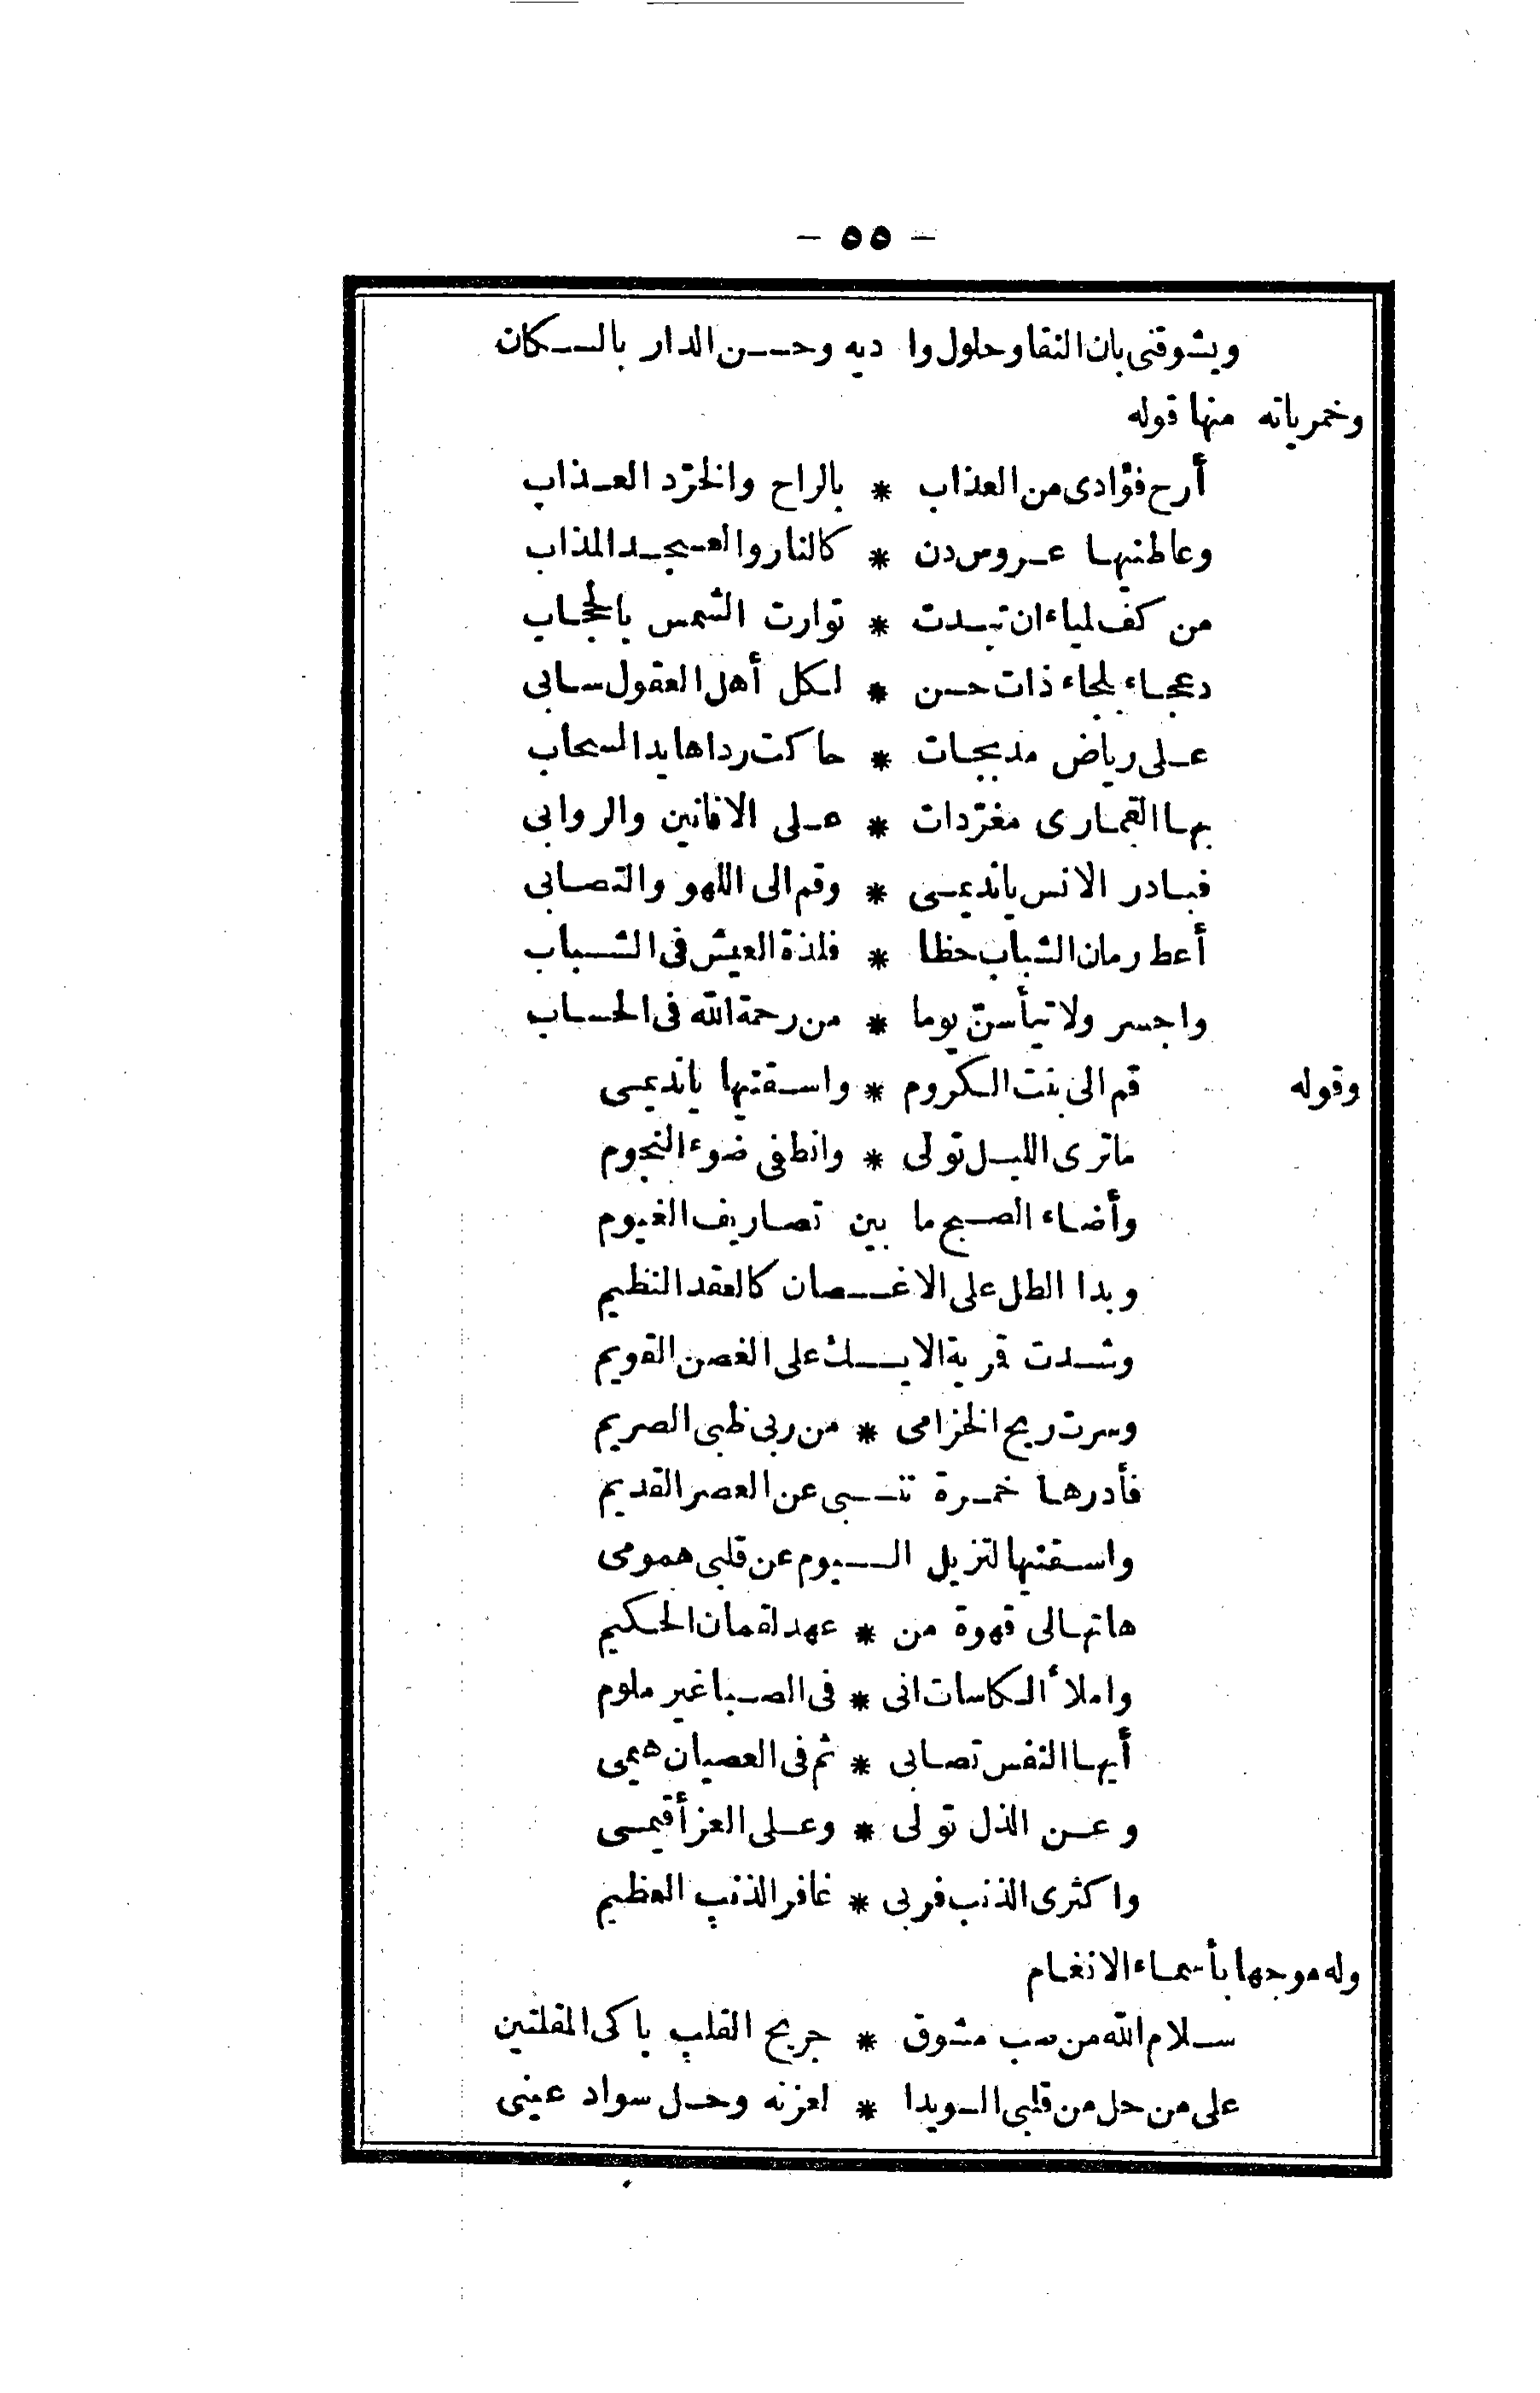 - ٥٥ -
ويشوقنى بان النقا وحلول وا ديه وحسن الدار بالسكان
وخمرياته منها قوله
أرح فؤادى من العذاب * بالراح والخرّد العذاب
وعاطنيها عروس دن * كالنار والعسجد المذاب
من كف لمياء ان تبدت * توارت الشمس بالحجاب
دعجاء بلجاء ذات حسن * لكل أهل العقول سابى
على رياض مدبجات * حاكت رداها يد السحاب
بها القمارى مغرّدات * على الافانين والروابى
فبادر الانس يانديمى * وقم الى اللهو والتصابى
أعط زمان الشباب حظا * فلذة العيش فى الشباب
واجسر ولا تيأسنّ يوما * من رحمة الله فى الحساب
وقوله قم الى بنت الكروم * واسقنيها يانديمى
ماترى الليل تولى * وانطفى ضوء النجوم
وأضاء الصبح ما بين تصاريف الغيوم
وبدا الطل على الاغصان كالعقد النظيم
وشدت قمرية الايك على الغصن القويم
وسرت ريح الخزامى * من ربى ظبى الصريم
فأدرها خمرة تنبى عن العصر القديم
واسقنيها لتزيل اليوم عن قلبى همومى
هاتها لى قهوة من * عهد لقمان الحكيم
واملأ الكاسات انى * فى الصبا غير ملوم
أيها النفس تصابى * ثم فى العصيان هيمى
وعن الذل تولى * وعلى العز أقيمى
واكثرى الذنب فربى * غافر الذنب العظيم
وله موجها بأسماء الانغام
سلام الله من صب مشوق * جريح القلب باكى المقلتين
على من حل من قلبى السويدا * لعزته وحل سواد عينى